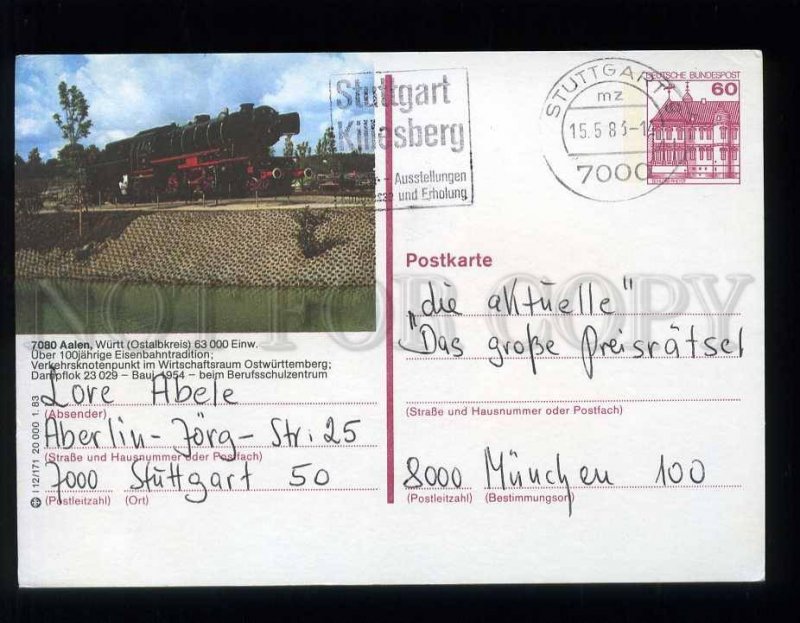 Stuttgart
Killesberg
- Ausstellungen
und Erholung
STUTTGART
mz
15.5.83-14
7000
DEUTSCHE BUNDESPOST
60
Postkarte
"die aktuelle"
"Das große Preisrätsel
(Straße und Hausnummer oder Postfach)
8000 München 100
(Postleitzahl) (Bestimmungsort)
7080 Aalen, Württ (Ostalbkreis) 63 000 Einw.
Über 100jährige Eisenbahntradition;
Verkehrsknotenpunkt im Wirtschaftsraum Ostwürttemberg;
Dampflok 23 029 – Bauj. 1954 – beim Berufsschulzentrum
Lore Abele
(Absender)
Aberlin-Jörg-Str. 25
(Straße und Hausnummer oder Postfach)
7000 Stuttgart 50
(Postleitzahl) (Ort)
I 12/171 20 000 1.83
NOT FOR COPY